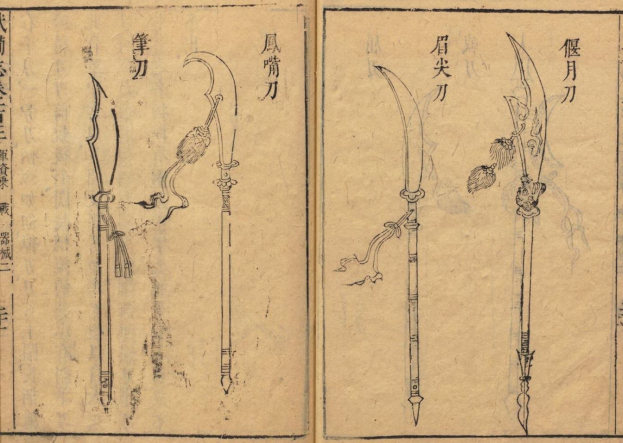 偃月刀
眉尖刀
鳳嘴刀
筆刀
武備志卷一百三 軍資乘 戰 器械二